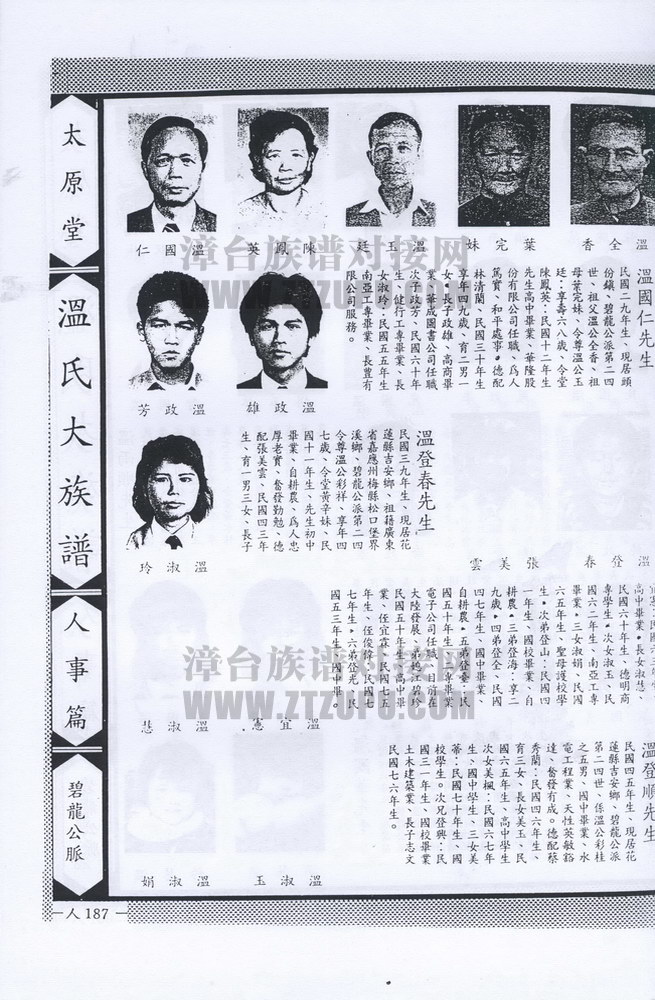 太原堂
溫氏大族譜
人事篇
碧龍公脈
人 187
溫全香
葉完妹
溫玉廷
陳鳳英
溫國仁
溫國仁先生
民國二九年生、現居頭
份鎮、碧龍公派第二四
世、祖父溫公全香、祖
母葉完妹、令尊溫公玉
廷：享壽六八歲、令堂
陳鳳英：民國十二年生
先生高中畢業、華隆股
份有限公司任職、爲人
篤實、和平處事。德配
林清蘭、民國三十年生
享年四九歲、育二男一
女、長子政雄、高商畢
業、華成圖書公司任職
次子政芳、民國六十年
生、健行工專畢業、長
女淑玲：民國五五年生
南亞工專畢業、長豐有
限公司服務。
溫政雄
溫政芳
溫淑玲
溫登春先生
民國三九年生、現居花
蓮縣吉安鄉、祖籍廣東
省嘉應州梅縣松口堡界
溪鄉、碧龍公派第二四
令尊溫公彩祥、享年四
七歲、令堂黃辛妹、民
國十一年生、先生初中
畢業、自耕農、爲人忠
厚老實、奮發勤勉、德
配張美雲、民國四三年
生、育一男三女、長子
溫登春
張美雲
高中畢業。長女淑慧、
民國六十年生、德明商
專學生。次女淑玉、民
國六二年生、南亞工專
畢業。三女淑娟、民國
六五年生、聖母護校學
生。次弟登山：民國四
一年生、國校畢業、自
耕農。三弟登海：享二
九歲。四弟登全、民國
四七年生、國中畢業、
自耕農。五弟登臺：民
國五十年生、工專畢業
電子公司任職、目前在
大陸發展、弟媳江碧珍
民國五十年生、高中畢
業、任宜霖、民國七五
年生、任俊偉、民國七
七年生。六弟登光、民
國五三年生、國中畢。
溫宜憲
溫淑慧
溫淑玉
溫淑娟
溫登順先生
民國四五年生、現居花
蓮縣吉安鄉、碧龍公派
第二四世、係溫公彩桂
之五男、國中畢業、水
電工程業、天性英敏豁
達、奮發有成。德配蔡
秀蘭：民國四六年生、
育三女、長女美玉、民
國六五年生、高中學生
次女美楓：民國六七年
生、國中學生、三女美
蓁：民國七十年生、國
校學生。次兄登興：民
國三一年生、國校畢業
土木建築業、長子志文
民國七六年生。
漳台族谱对接网
WWW.ZTZUPU.COM
漳台族谱对接网
WWW.ZTZUPU.COM